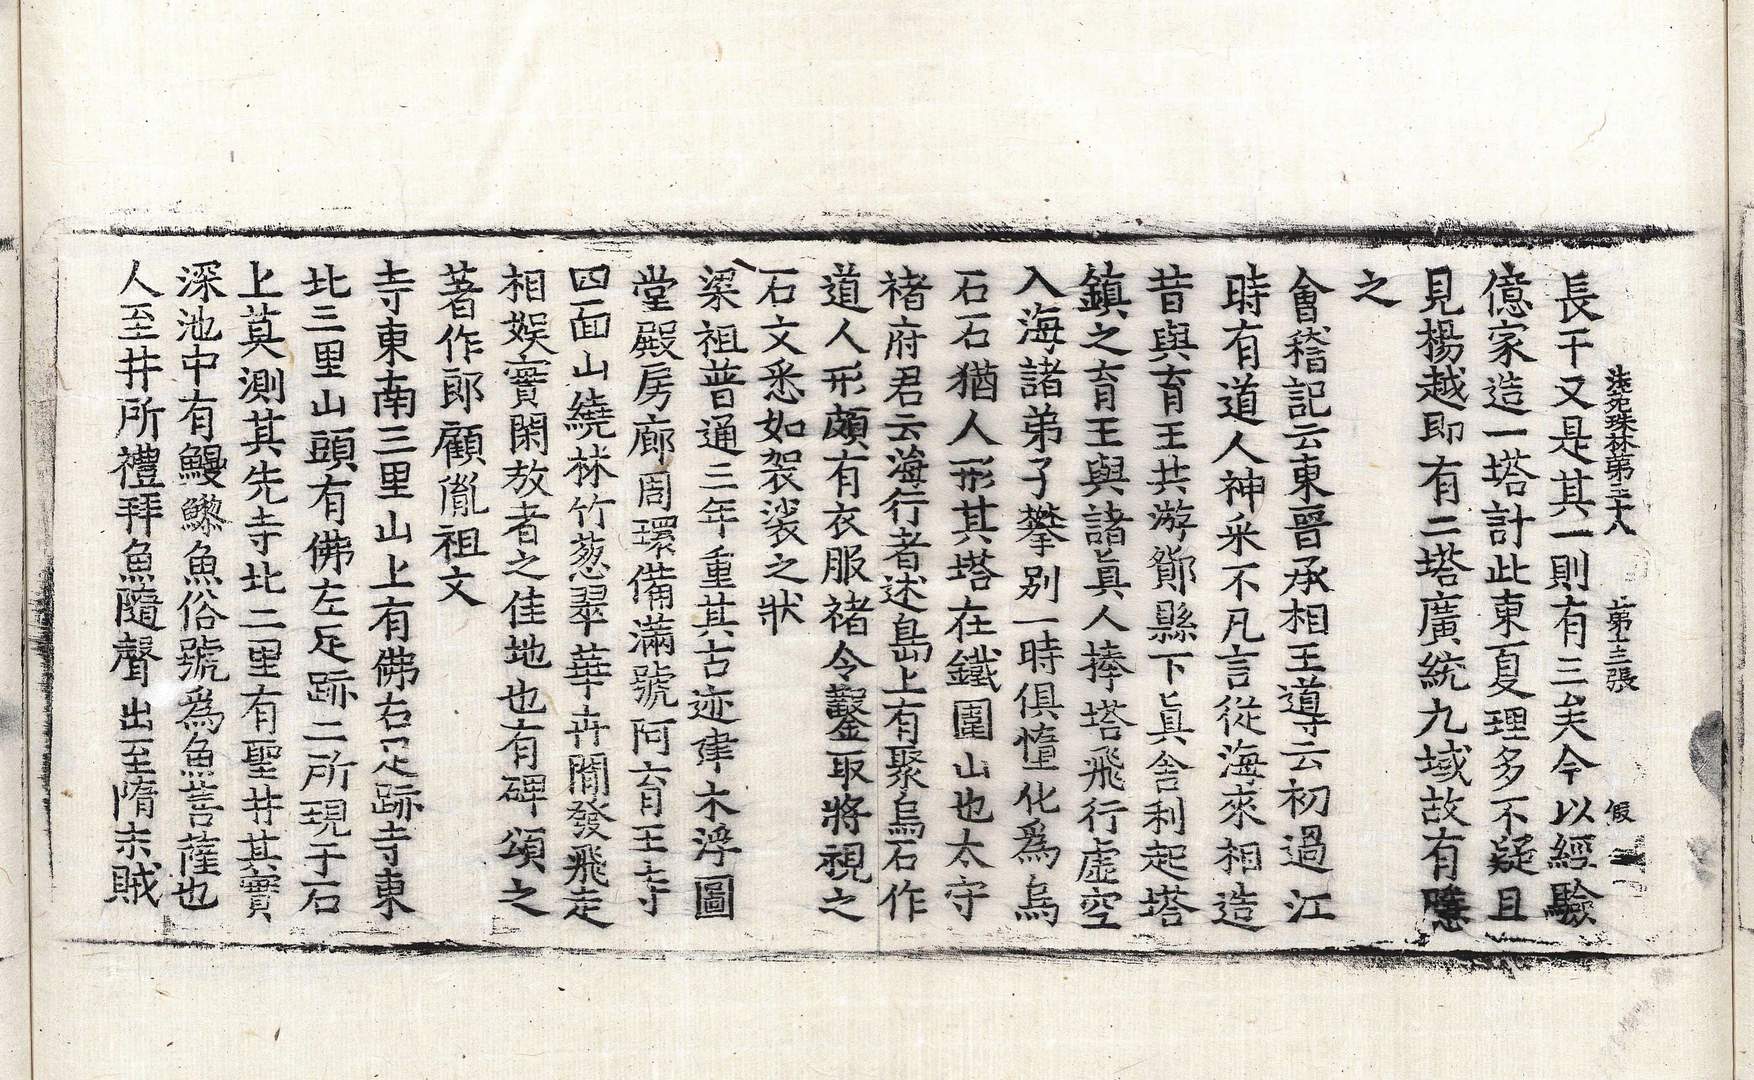 法苑珠林第三十八　第三張　假
長干又是其一則有三矣今以經驗
億家造一塔計此東夏理多不疑且
見楊越即有二塔廣統九域故有隱
之
會稽記云東晉承相王導云初過江
時有道人神采不凡言從海來相造
昔與育王共游鄮縣下真舍利起塔
鎮之育王與諸真人捧塔飛行虛空
入海諸弟子攀別一時俱墮化爲烏
石石猶人形其塔在鐵圍山也太守
褚府君云海行者述島上有聚烏石作
道人形頗有衣服褚令鑿取將視之
石文悉如袈裟之狀
梁祖普通三年重其古迹建木浮圖
堂殿房廊周環備滿號阿育王寺
四面山繞林竹葱翠華卉閒發飛走
相娛實閑放者之佳地也有碑頌之
著作郎顧胤祖文
寺東南三里山上有佛右足跡寺東
北三里山頭有佛左足跡二所現于石
上莫測其先寺北二里有聖井其實
深池中有鰻鱺魚俗號爲魚菩薩也
人至井所禮拜魚隨聲出至隋末賊